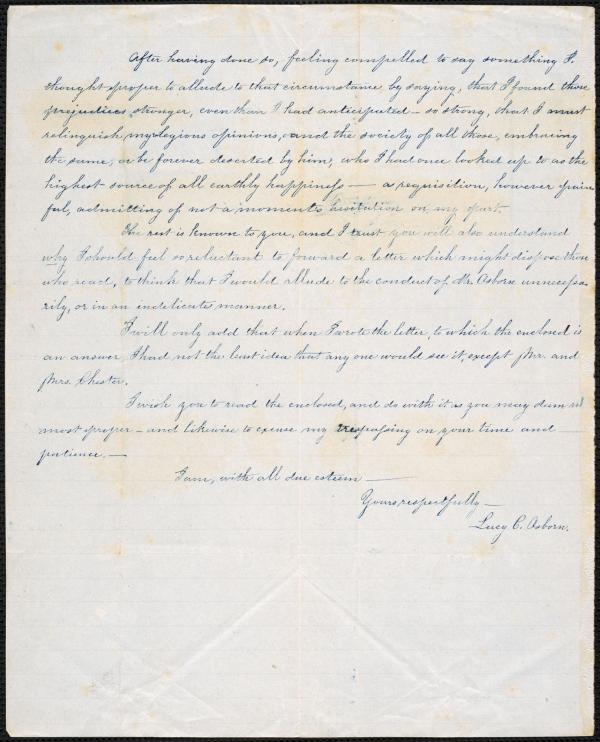 After having done so, feeling compelled to say something I
thought proper to allude to that circumstance by saying, that I found those
prejudices stronger, even than I had anticipated — so strong, that I must
relinquish my religious opinions, and the society of all those, embracing
the same, or be forever deserted by him, who I had once looked up to as the
highest source of all earthly happiness — a requisition, however pain-
ful, admitting of not a moment's hesitation on my part.
The rest is known to you, and I trust you will also understand
why I should feel so reluctant to forward a letter which might dispose those
who read, to think that I would allude to the conduct of Mr. Osborn unnecessa-
rily, or in an indelicate manner.
I will only add that when I wrote the letter, to which the enclosed is
an answer, I had not the least idea that any one would see it, except Mr. and
Mrs. Chester.
I wish you to read the enclosed, and do with it as you may deem
most proper — and likewise to excuse my trespassing on your time and
patience. —
I am, with all due esteem —
Yours respectfully —
Lucy C. Osborn.